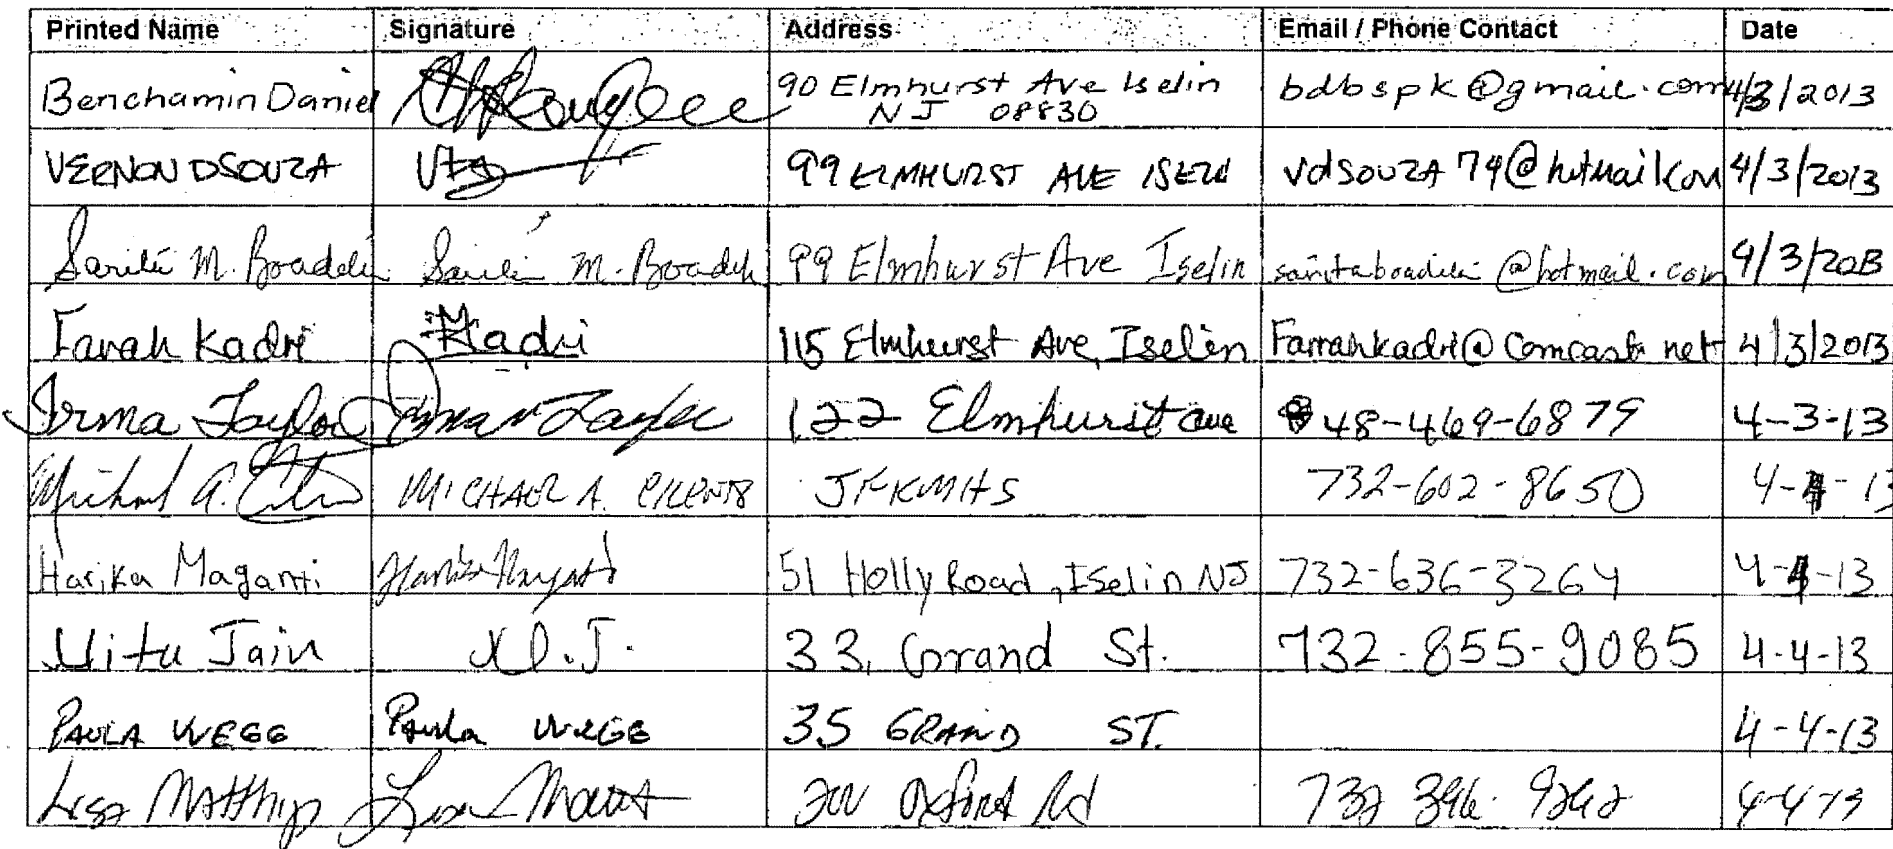 Printed Name Signature Address Email / Phone Contact Date
Benchamin Daniel 90 Elmhurst Ave Iselin bdbspk@gmail.com 4/3/2013
NJ 08830
VERNON DSOUZA 99 ELMHURST AVE ISELIN vdsouza74@hotmail.com 4/3/2013
M. 99 Elmhurst Ave Iselin @hotmail.com 4/3/2013
Farah Kadri Kadri 115 Elmhurst Ave, Iselin Farrahkadri@comcast.net 4/3/2013
Irma Taylor Irma Taylor 122 Elmhurst ave 848-469-6879 4-3-13
MICHAEL A. JFKMHS 732-602-8650 4-4-13
Harika Maganti 51 Holly Road, Iselin NJ 732-636-3264 4-4-13
Jain 33, Grand St. 732-855-9085 4-4-13
PAULA WEGG Paula WEGG 35 GRAND ST. 4-4-13
Lisa Lisa Oxford Rd 732 4-4-13